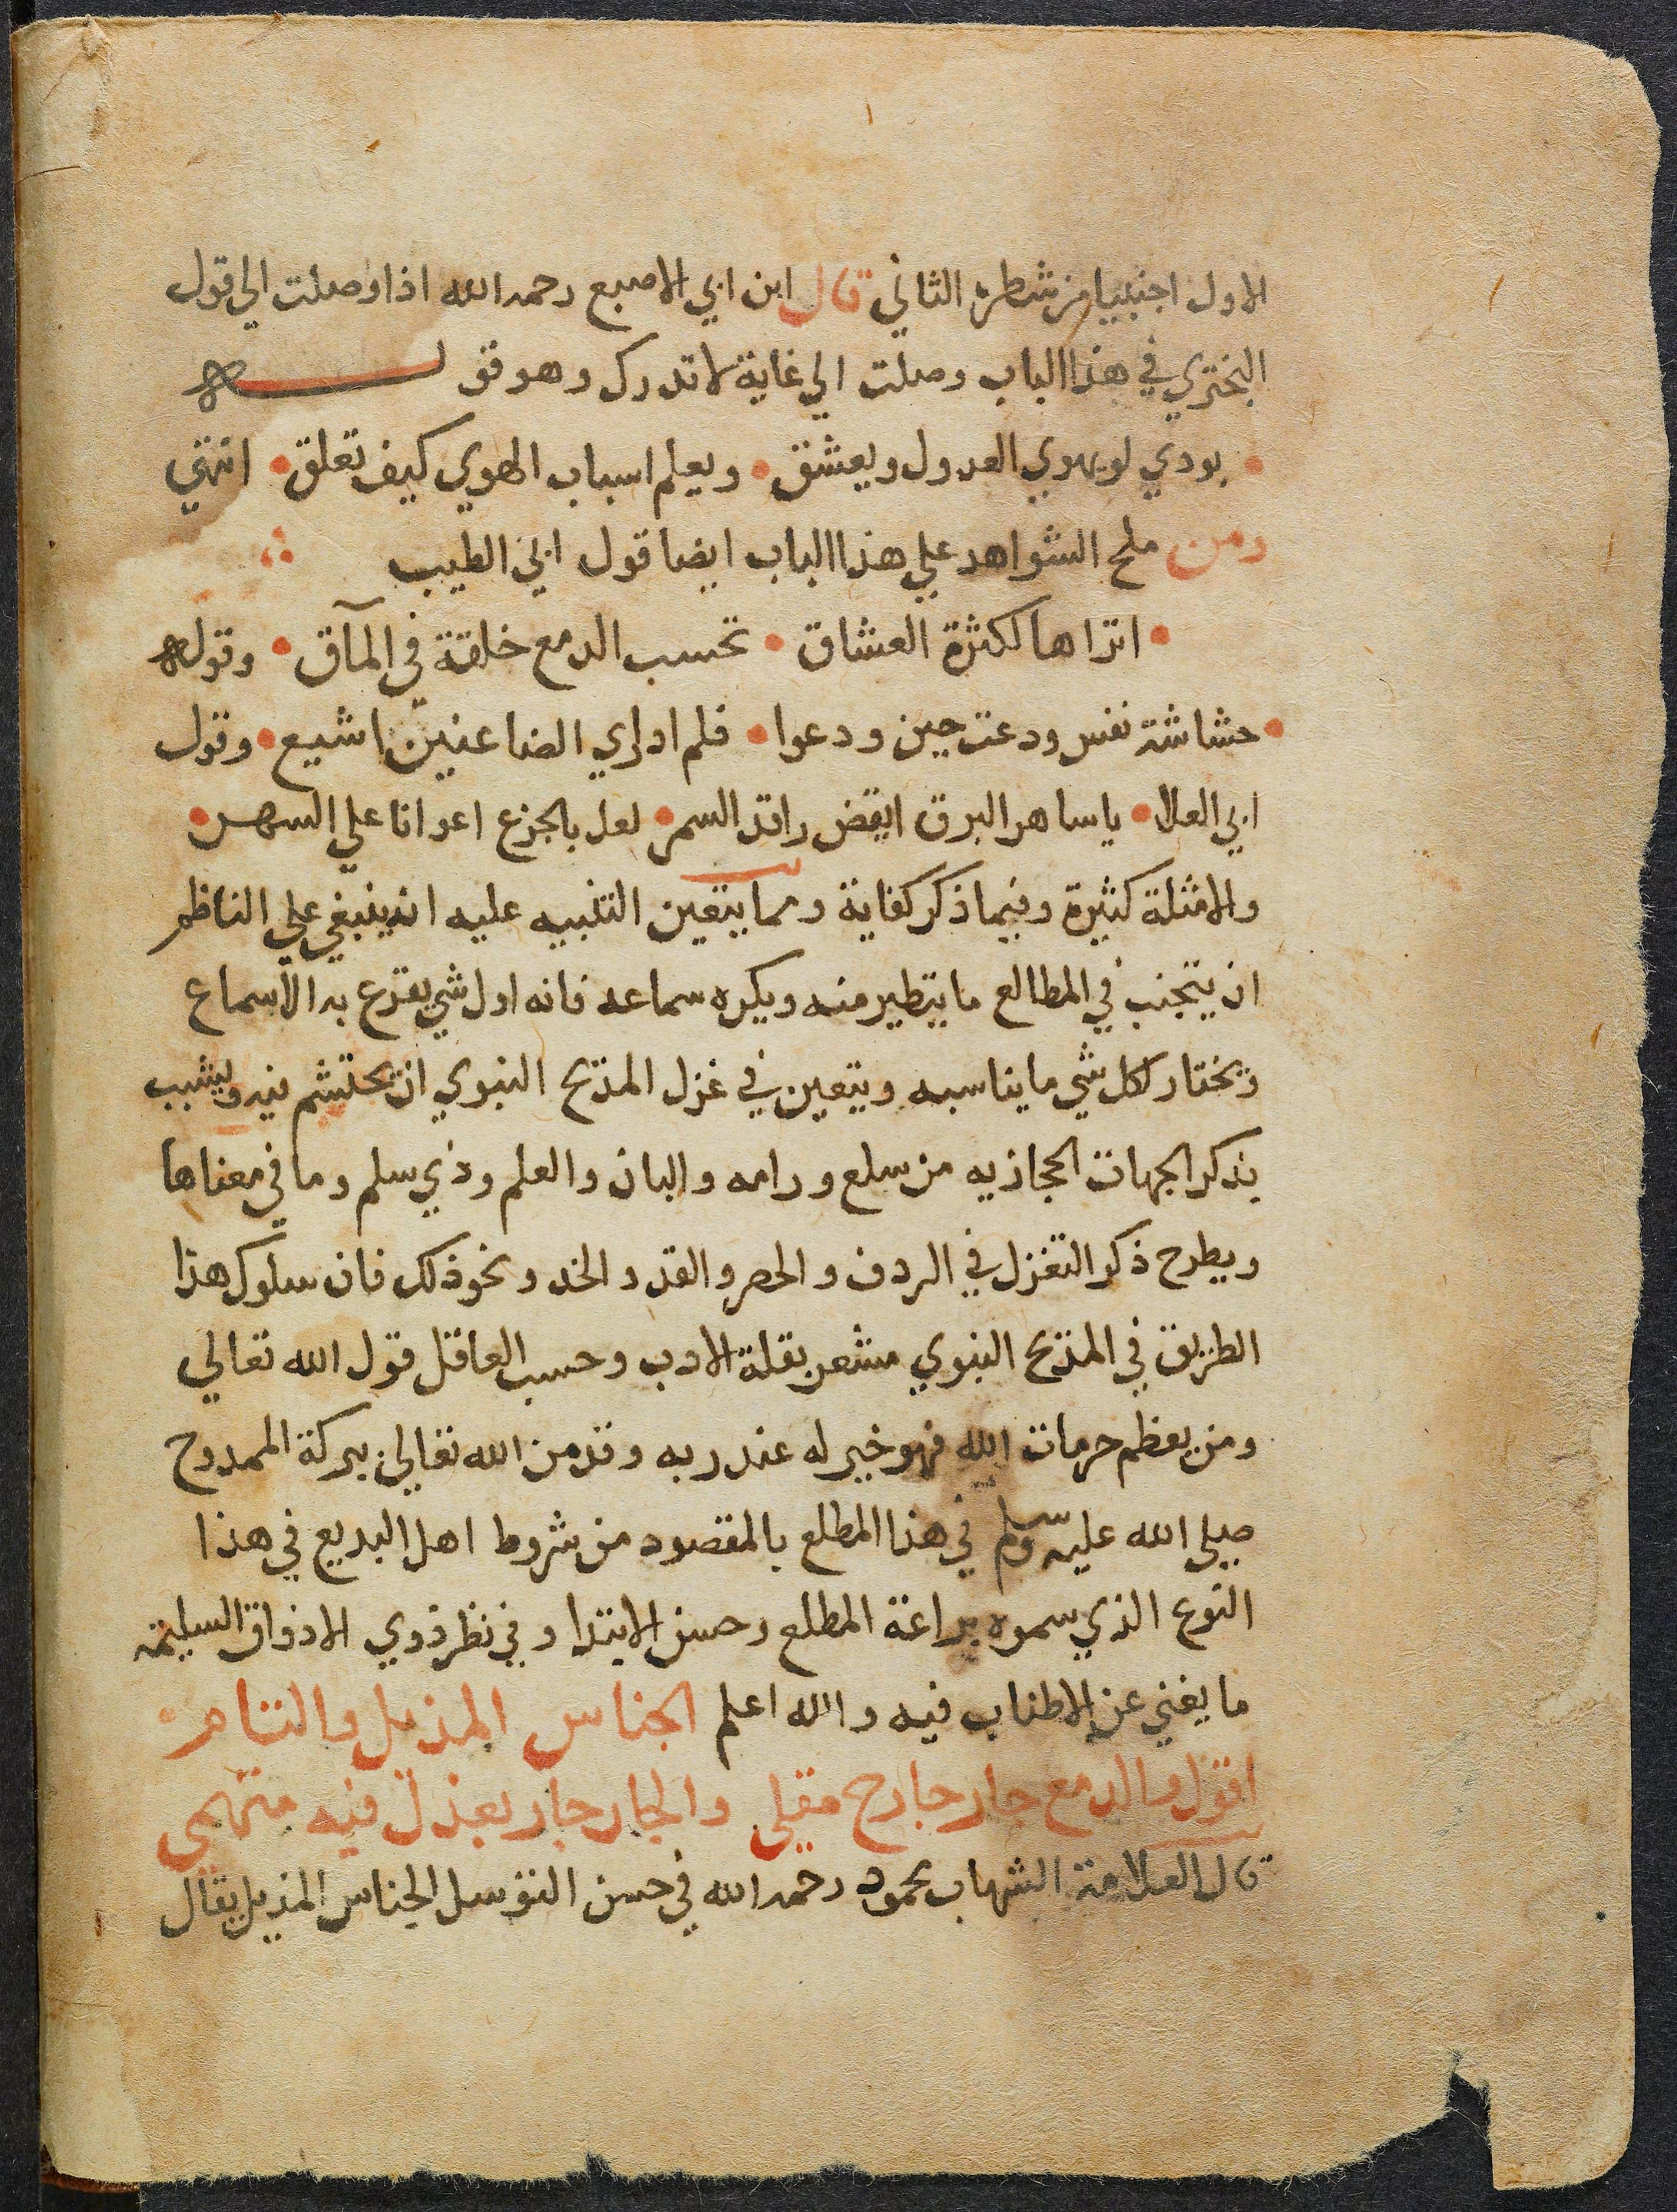 الاول اجنبيا من شطره الثاني قال ابن ابي الاصبع رحمه الله اذا وصلت الي قول
البختري في هذا الباب وصلت الي غاية لا تدرك وهو قوله
بودي لو يهوي العدول ويعشق • ويعلم اسباب الهوي كيف تعلق • انتهي
ومن ملح الشواهد علي هذا الباب ايضا قول ابي الطيب
• اتراها لكثرة العشاق • تحسب الدمع خلقة في المآق • وقوله
• حشاشة نفس ودعت حين ودعوا • فلم ادراي الضاعنين اشيع • وقول
ابي العلا • يا ساهر البرق ايقض راقد السمر • لعل بالجزع اعوانا علي السهر •
والامثلة كثيرة وفيما ذكر كفاية ومما يتعين التنبيه عليه انه ينبغي علي الناظم
ان يتجنب في المطالع ما يتطير منه ويكره سماعه فانه اول شي يقرع به الاسماع
ويختار لكل شي ما يناسبه ويتعين في غزل المديح النبوي ان يحتشم فيه ويشبب
بذكر الجهات الحجازيه من سلع ورامه والبان والعلم وذي سلم وما في معناها
ويطرح ذكر التغزل في الردف والخصر والقد والخد ونحو ذلك فان سلوك هذا
الطريق في المديح النبوي مشعر بقلة الادب وحسب العاقل قول الله تعالي
ومن يعظم حرمات الله فهو خير له عند ربه وقد من الله تعالي ببركة الممدوح
صلي الله عليه وسلم في هذا المطلع بالمقصود من شروط اهل البديع في هذا
النوع الذي سموه براعة المطلع وحسن الابتدا وفي نظر ذوي الاذواق السليمة
ما يغني عن الاطناب فيه والله اعلم الجناس المذيل والتام
اقول والدمع جار جارح مقلي والجار جار بعذل فيه متهمي
قال العلامة الشهاب محمود رحمه الله في حسن التوسل الجناس المذيل يقال